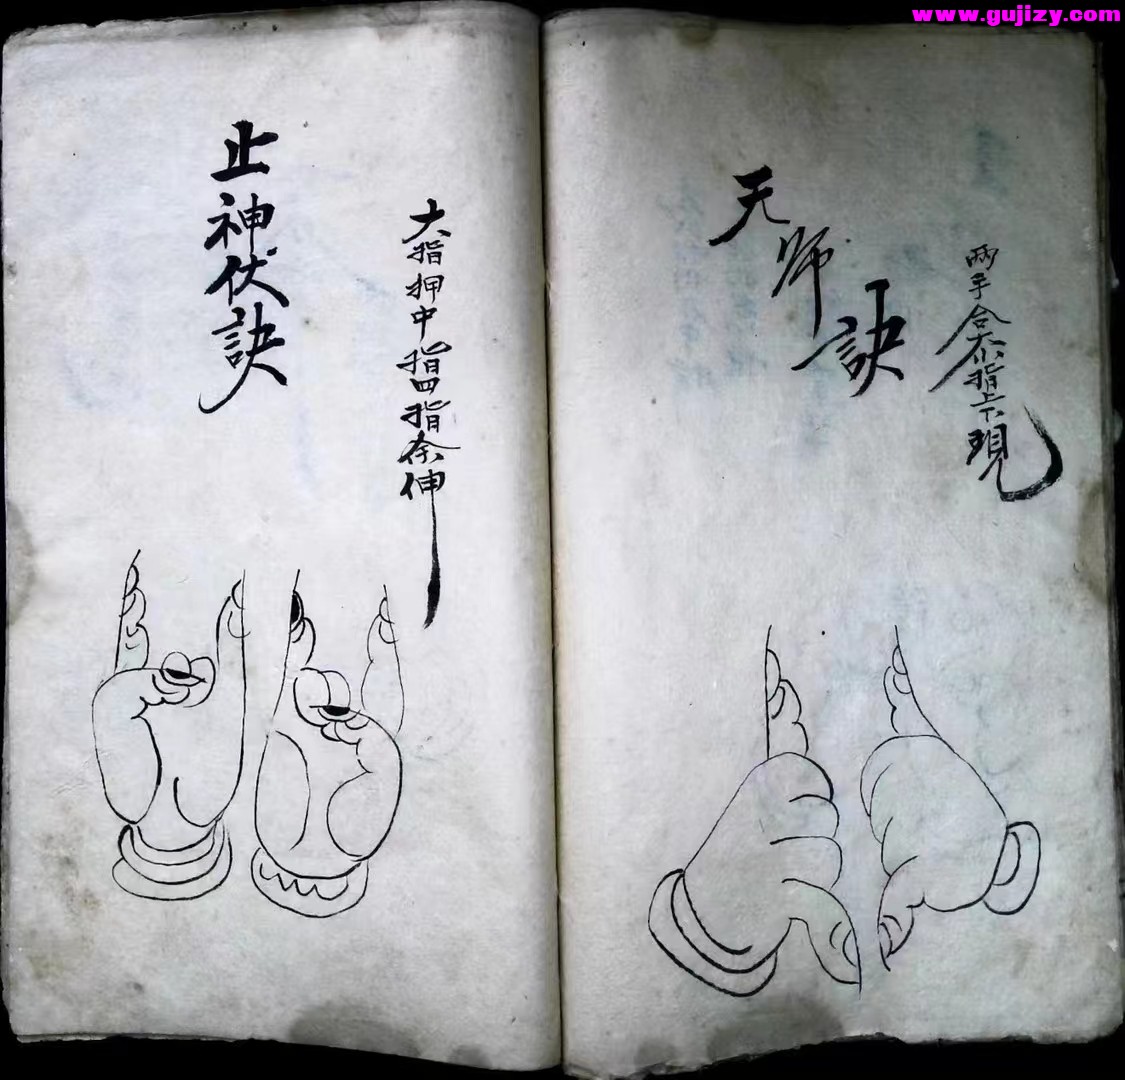 www.gujizy.com
天师訣
両手合大小指上下現
止神伏訣
大指押中指四指余伸